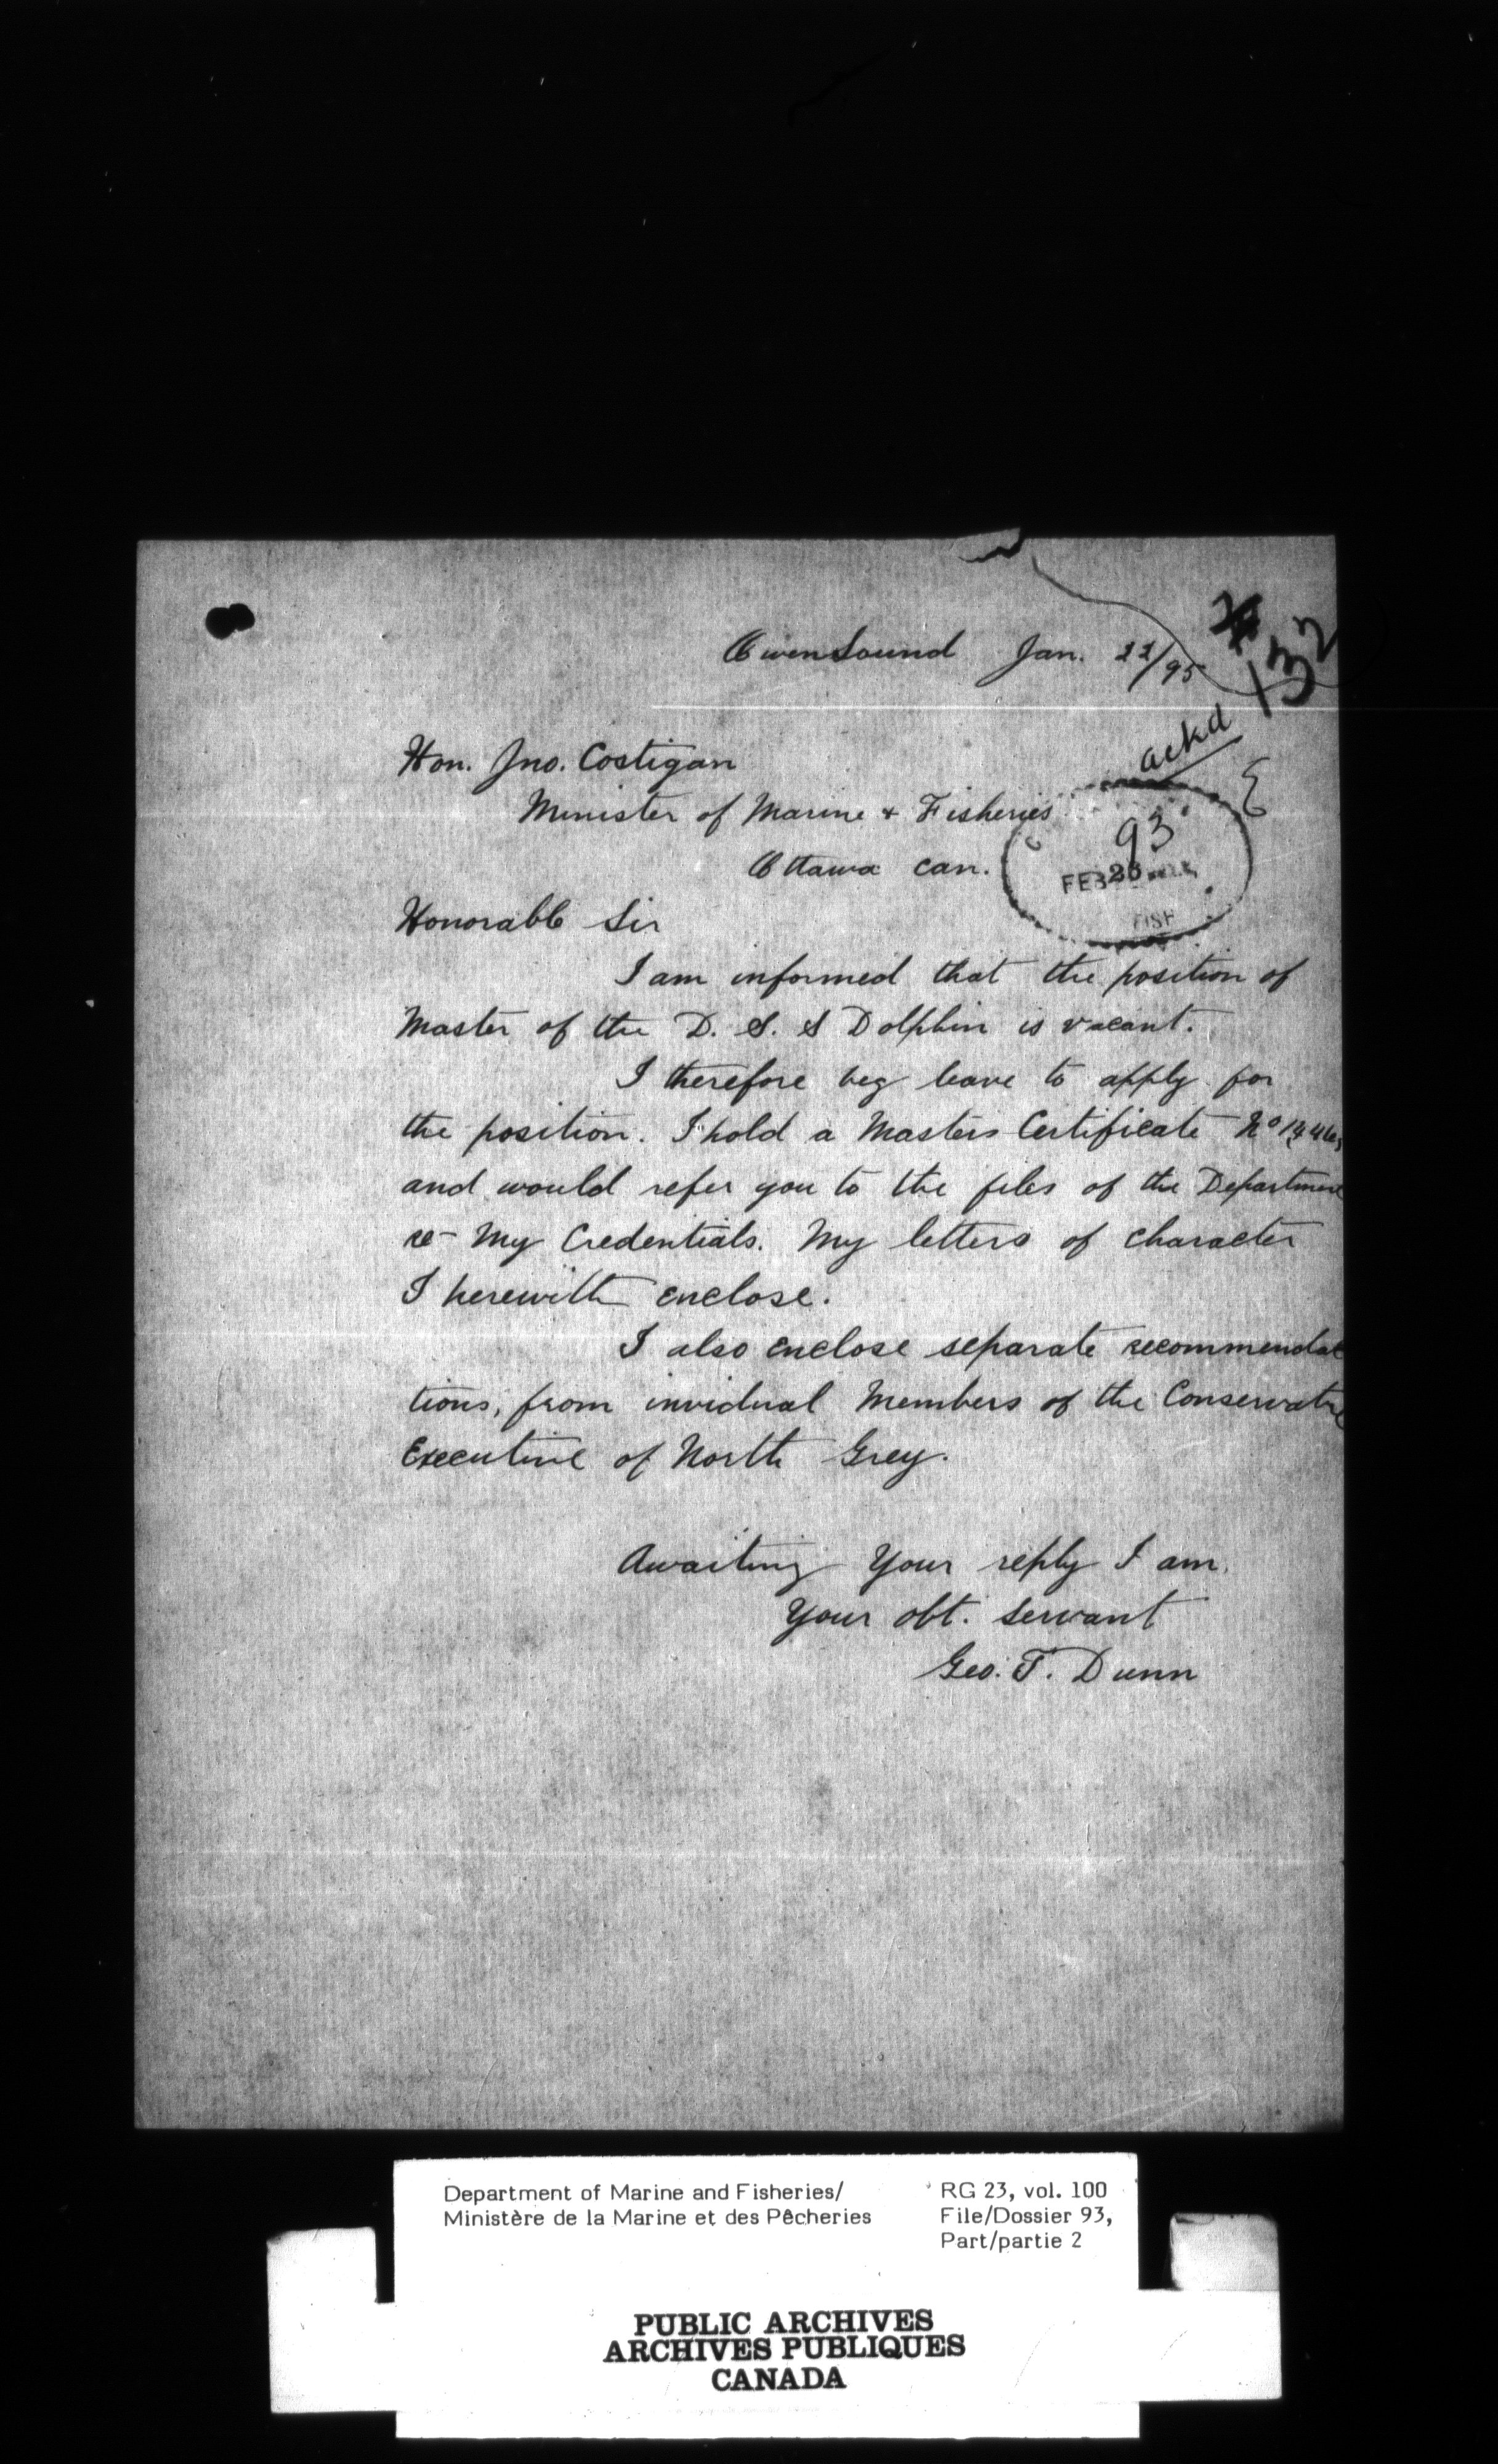 132
Owen Sound Jan. 22/95
ackd
Hon. Jno. Costigan
Minister of Marine + Fisheries
93
Ottawa Can.
FEB 26
FISH
Honorable Sir
I am informed that the position of
Master of the D. S. S Dolphin is vacant.
I therefore beg leave to apply for
the position. I hold a Masters Certificate No
and would refer you to the files of the Department
re- My Credentials. My letters of character
I herewith enclose.
I also enclose separate recommendat
tions, from invidual Members of the Conservative
Executive of North Grey.
Awaiting Your reply I am.
Your obt. servant
Geo. T. Dunn
Department of Marine and Fisheries/
Ministère de la Marine et des Pêcheries
RG 23, vol. 100
File/Dossier 93,
Part/partie 2
PUBLIC ARCHIVES
ARCHIVES PUBLIQUES
CANADA